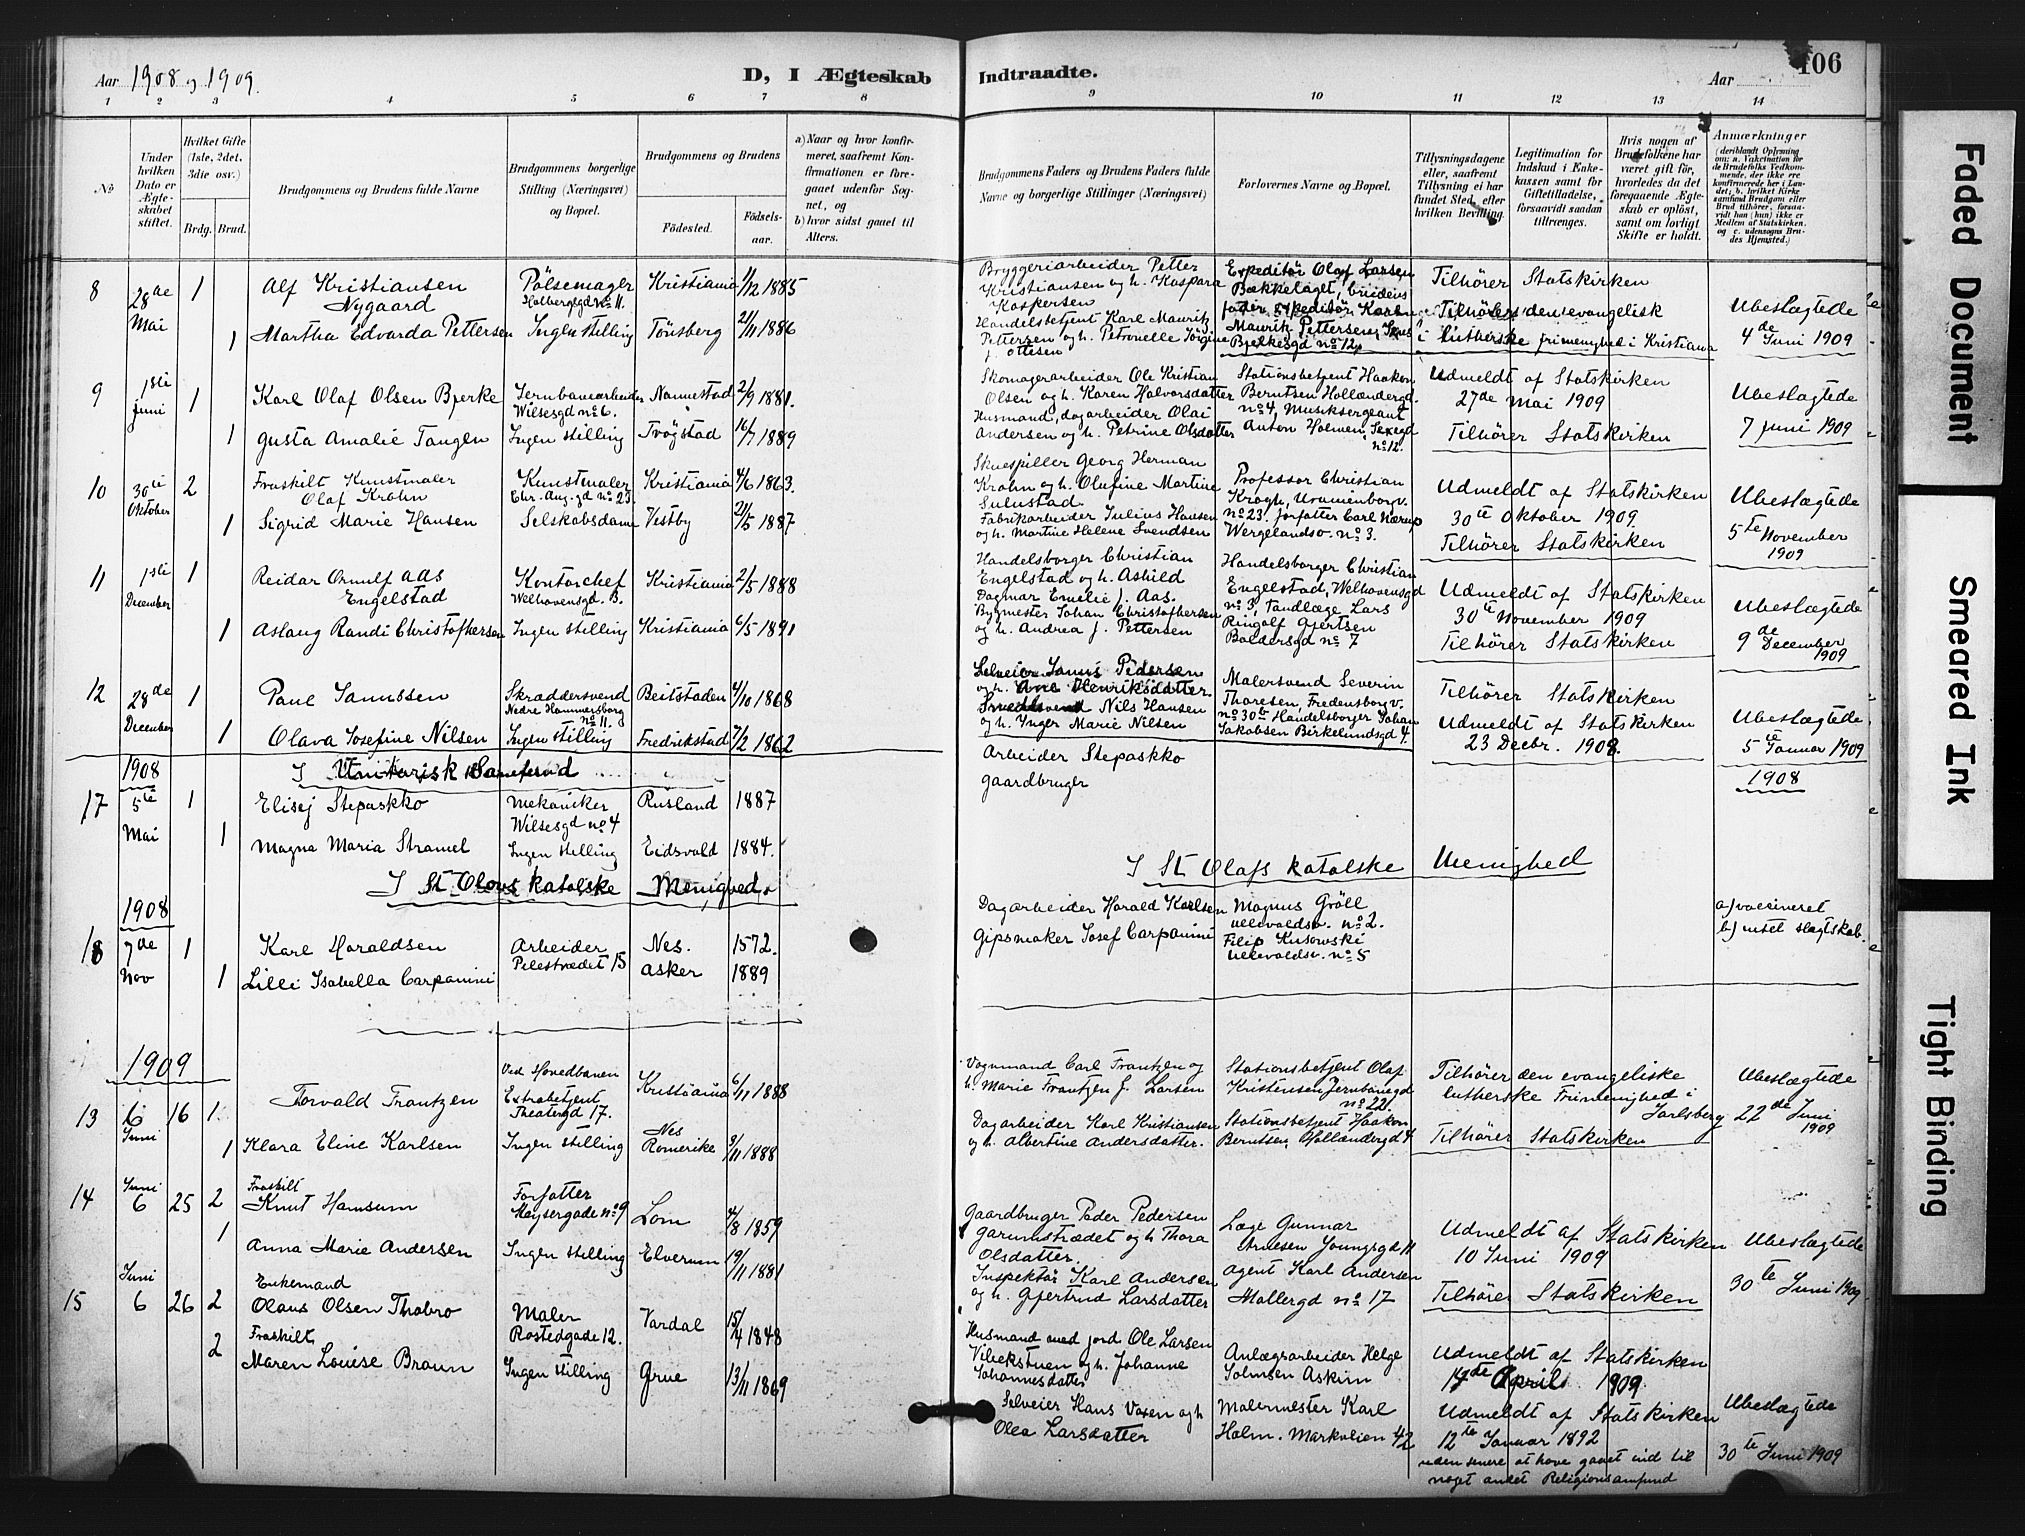 Aar 1908 og 1909.
D, I Ægteskab
Indtraadte.
Aar
106
1 2 3 4 5 6 7 8
9 10 11 12 13 14
No
Under hvilken Dato er Ægteskabet stiftet.
Hvilket Gifte (1ste, 2det, 3die osv.)
Brdg. Brud.
Brudgommens og Brudens fulde Navne
Brudgommens borgerlige Stilling (Næringsvei) og Bopæl.
Brudgommens og Brudens
Fødested.
Fødsels-aar.
a) Naar og hvor konfirmeret, saafremt Konfirmationen er foregaaet udenfor Sognet, og
b) hvor sidst gaaet til Alters.
Brudgommens Faders og Brudens Faders fulde Navne og borgerlige Stillinger (Næringsvei)
Forlovernes Navne og Bopæl.
Tillysningsdagene eller, saafremt Tillysning ei har fundet Sted, efter hvilken Bevilling.
Legitimation for Indskud i Enkekassen samt for Giftetilladelse, forsaavidt saadan tiltrænges.
Hvis nogen af Brudefolkene har været gift før, hvorledes da det foregaaende Ægteskab er opløst, samt om lovligt Skifte er holdt.
Anmærkninger
(deriblandt Oplysning om: a. Vaksination for de Brudefolks Vedkommende, der ikke ere konfirmerede her i Landet; b. hvilket Kirkesamfund Brudgom eller Brud tilhører, forsaavidt han (hun) ikke er Medlem af Statskirken, og c. udensogns Brudes Hjemsted.)
8 28de Mai 1 Alf Kristiansen Nygaard Pølsemager Holbergsgd no 11. Kristiania 1/12 1885
1 Martha Edvarda Pettersen Ingen stilling Tønsberg 21/11 1886
Bryggeriarbeider Petter Kristiansen og h. Kaspara Kaspersen
Handelsbetjent Karl Maurik Pettersen og h. Petronelle Jörgine f. Ottesen
Expeditör Olaf Larsen Bækkelaget, brudens fader, expeditör Karl Maurik Pettersen, Jens Bjelkesgd no 12,
Tilhörer Statskirken
Tilhörer den evangelisk lutherske frimenighed i Kristiania
Ubeslægtede
4de Juni 1909
9 1ste juni 1 Karl Olaf Olsen Bjerke Jernbanearbeider Wilsesgd no 6. Nannestad 2/9 1881.
1 Gusta Amalie Tangen Ingen stilling Trögstad 16/7 1889
Skomagerarbeider Ole Kristian Olsen og h. Karen Halvorsdatter
Husmand, dagarbeider Olai Andersen og h. Petrine Olsdatter
Stationsbetjent Haakon Berntsen Hollændergd. no 4, Musiksergeant Anton Holmen, Saxegd no 12.
Udmeldt af Statskirken
27de Mai 1909
Tilhörer Statskirken
Ubeslægtede
7 juni 1909
10 30te Oktober 2 Fraskilt Kunstmaler Olaf Krohn Kunstmaler Chr. Aug. gd no 23. Kristiania 4/6 1863.
1 Sigrid Marie Hansen Selskabsdame Vestby 21/5 1887
Skuespiller Georg Herman Krohn og h. Olufine Martine Sulustad
Fabrikarbeider Julius Hansen og h. Martine Helene Svendsen
Professor Christian Krogh, Uranienborgv. no 23. forfatter Carl Nærup Wergelandsv. no 3.
Udmeldt af Statskirken
30te Oktober 1909.
Tilhörer Statskirken
Ubeslægtede
5te November 1909
11 1ste December 1 Reidar Ornulf Aas Engelstad Kontorchef Welhavensgd 3. Kristiania 2/5 1888
1 Aslaug Randi Christophersen Ingen stilling Kristiania 6/5 1891
Handelsborger Christian Engelstad og h. Ashild Dagmar Emelie f. Aas.
Bygmester Johan Christophersen og h. Andrea f. Pettersen
Handelsborger Christian Engelstad, Welhavensgd no 3, Tandlæge Lars Ringolf Gjertsen Baldersgd no 7
Udmeldt af Statskirken
30te November 1909
Tilhörer Statskirken
Ubeslægtede
9de December 1909
12 28de December 1 Paul Janussen Skræddersvend Nedre Hammersborg no 11. Beitstaden 4/10 1868
1 Olava Josefine Nilsen Ingen stilling Fredrikstad 7/2 1862
Selveier Janus Pedersen og h. Ane Henriksdatter
Smedsvend Nils Hansen og h. Inger Marie Nilsen
Malersvend Severin Thoresen, Fredensborgv. no 30b Handelsborger Johan Jakobsen Birkelundsgd 4.
Tilhörer Statskirken
Udmeldt af Statskirken
23 Decbr. 1908.
Ubeslægtede
5te Januar 1909
1908
I Unitarisk Samfund
17 5te Mai 1 Elisej Stepaskko Mekaniker Wilsesgd no 4 Rusland 1887
1 Magna Maria Stramel Ingen stilling Eidsvold 1884.
Arbeider Stepaskko
gaardbruger
1908
I St Olavs Katolske Menighed.
I St Olafs Katolske Menighed
1908
18 7de Nov 1 Karl Haraldsen Arbeider Pilestrædet 15 Nes. 1572.
1 Lilli Isabella Carpanini Asker 1889
Dagarbeider Harald Karlsen
Gipsmaker Josef Carpanini
Magnus Gröll Ullevoldsv. no 2.
Filip Kusowski Ullevoldsv. no 5
a) vaccineret
b) intet slagtskab.
1909
13 6 Juni 16 1 Torvald Frantzen Ved Hovedbanen Extrabetjent Theatergd 17. Kristiania 6/11 1888
1 Klara Eline Karlsen Ingen stilling Nes Romerike 3/11 1888
Vognmand Carl Frantzen og h. Marie Frantzen f. Larsen
Dagarbeider Karl Kristiansen og h. Albertine Andersdatter.
Stationsbetjent Olaf Kristensen Jernbanegd no 22.
Stationsbetjent Haakon Berntsen Hollændergd 4
Tilhörer den evangeliske lutherske Frimenighed i Jarlsberg
Tilhörer Statskirken
Ubeslægtede
22de Juni 1909
14 Juni 6 25 2 Fraskilt Knut Hamsun Forfatter Meysergade no 9 Lom 4/8 1859
1 Anna Marie Andersen Ingen stilling Elverum 19/11 1881
Gaardbruger Peder Pedersen Garmustrædet og h Thora Olsdatter.
Inspektör Karl Andersen og h. Gjertrud Larsdatter
Læge Gunnar Arnesen Youngsgd 11
Agent Karl Andersen Møllergd no 17
Udmeldt af Statskirken
10 Juni 1909
Tilhörer Statskirken
Ubeslægtede
30te Juni 1909
15 Juni 6 26 2 Enkemand Olaus Olsen Thobro Maler Rostedgade 12. Vardal 15/4 1848
2 Fraskilt Maren Louise Braun Ingen stilling Grue 13/11 1869
Husmand med jord Ole Larsen Vibekstuen og h. Johanne Johannesdatter
Selveier Hans Vaxen og h Olea Larsdatter
Anlægsarbeider Helge Solmsen Askim
Malermester Karl Holm. Markveien 42
Udmeldt af Statskirken
14de April 1909
Udmeldt af Statskirken
12te Januar 1892
uden senere at have gaaet ind til noget andet Religionssamfund
Ubeslægtede
30te Juni 1909
Faded Document
Smeared Ink
Tight Binding